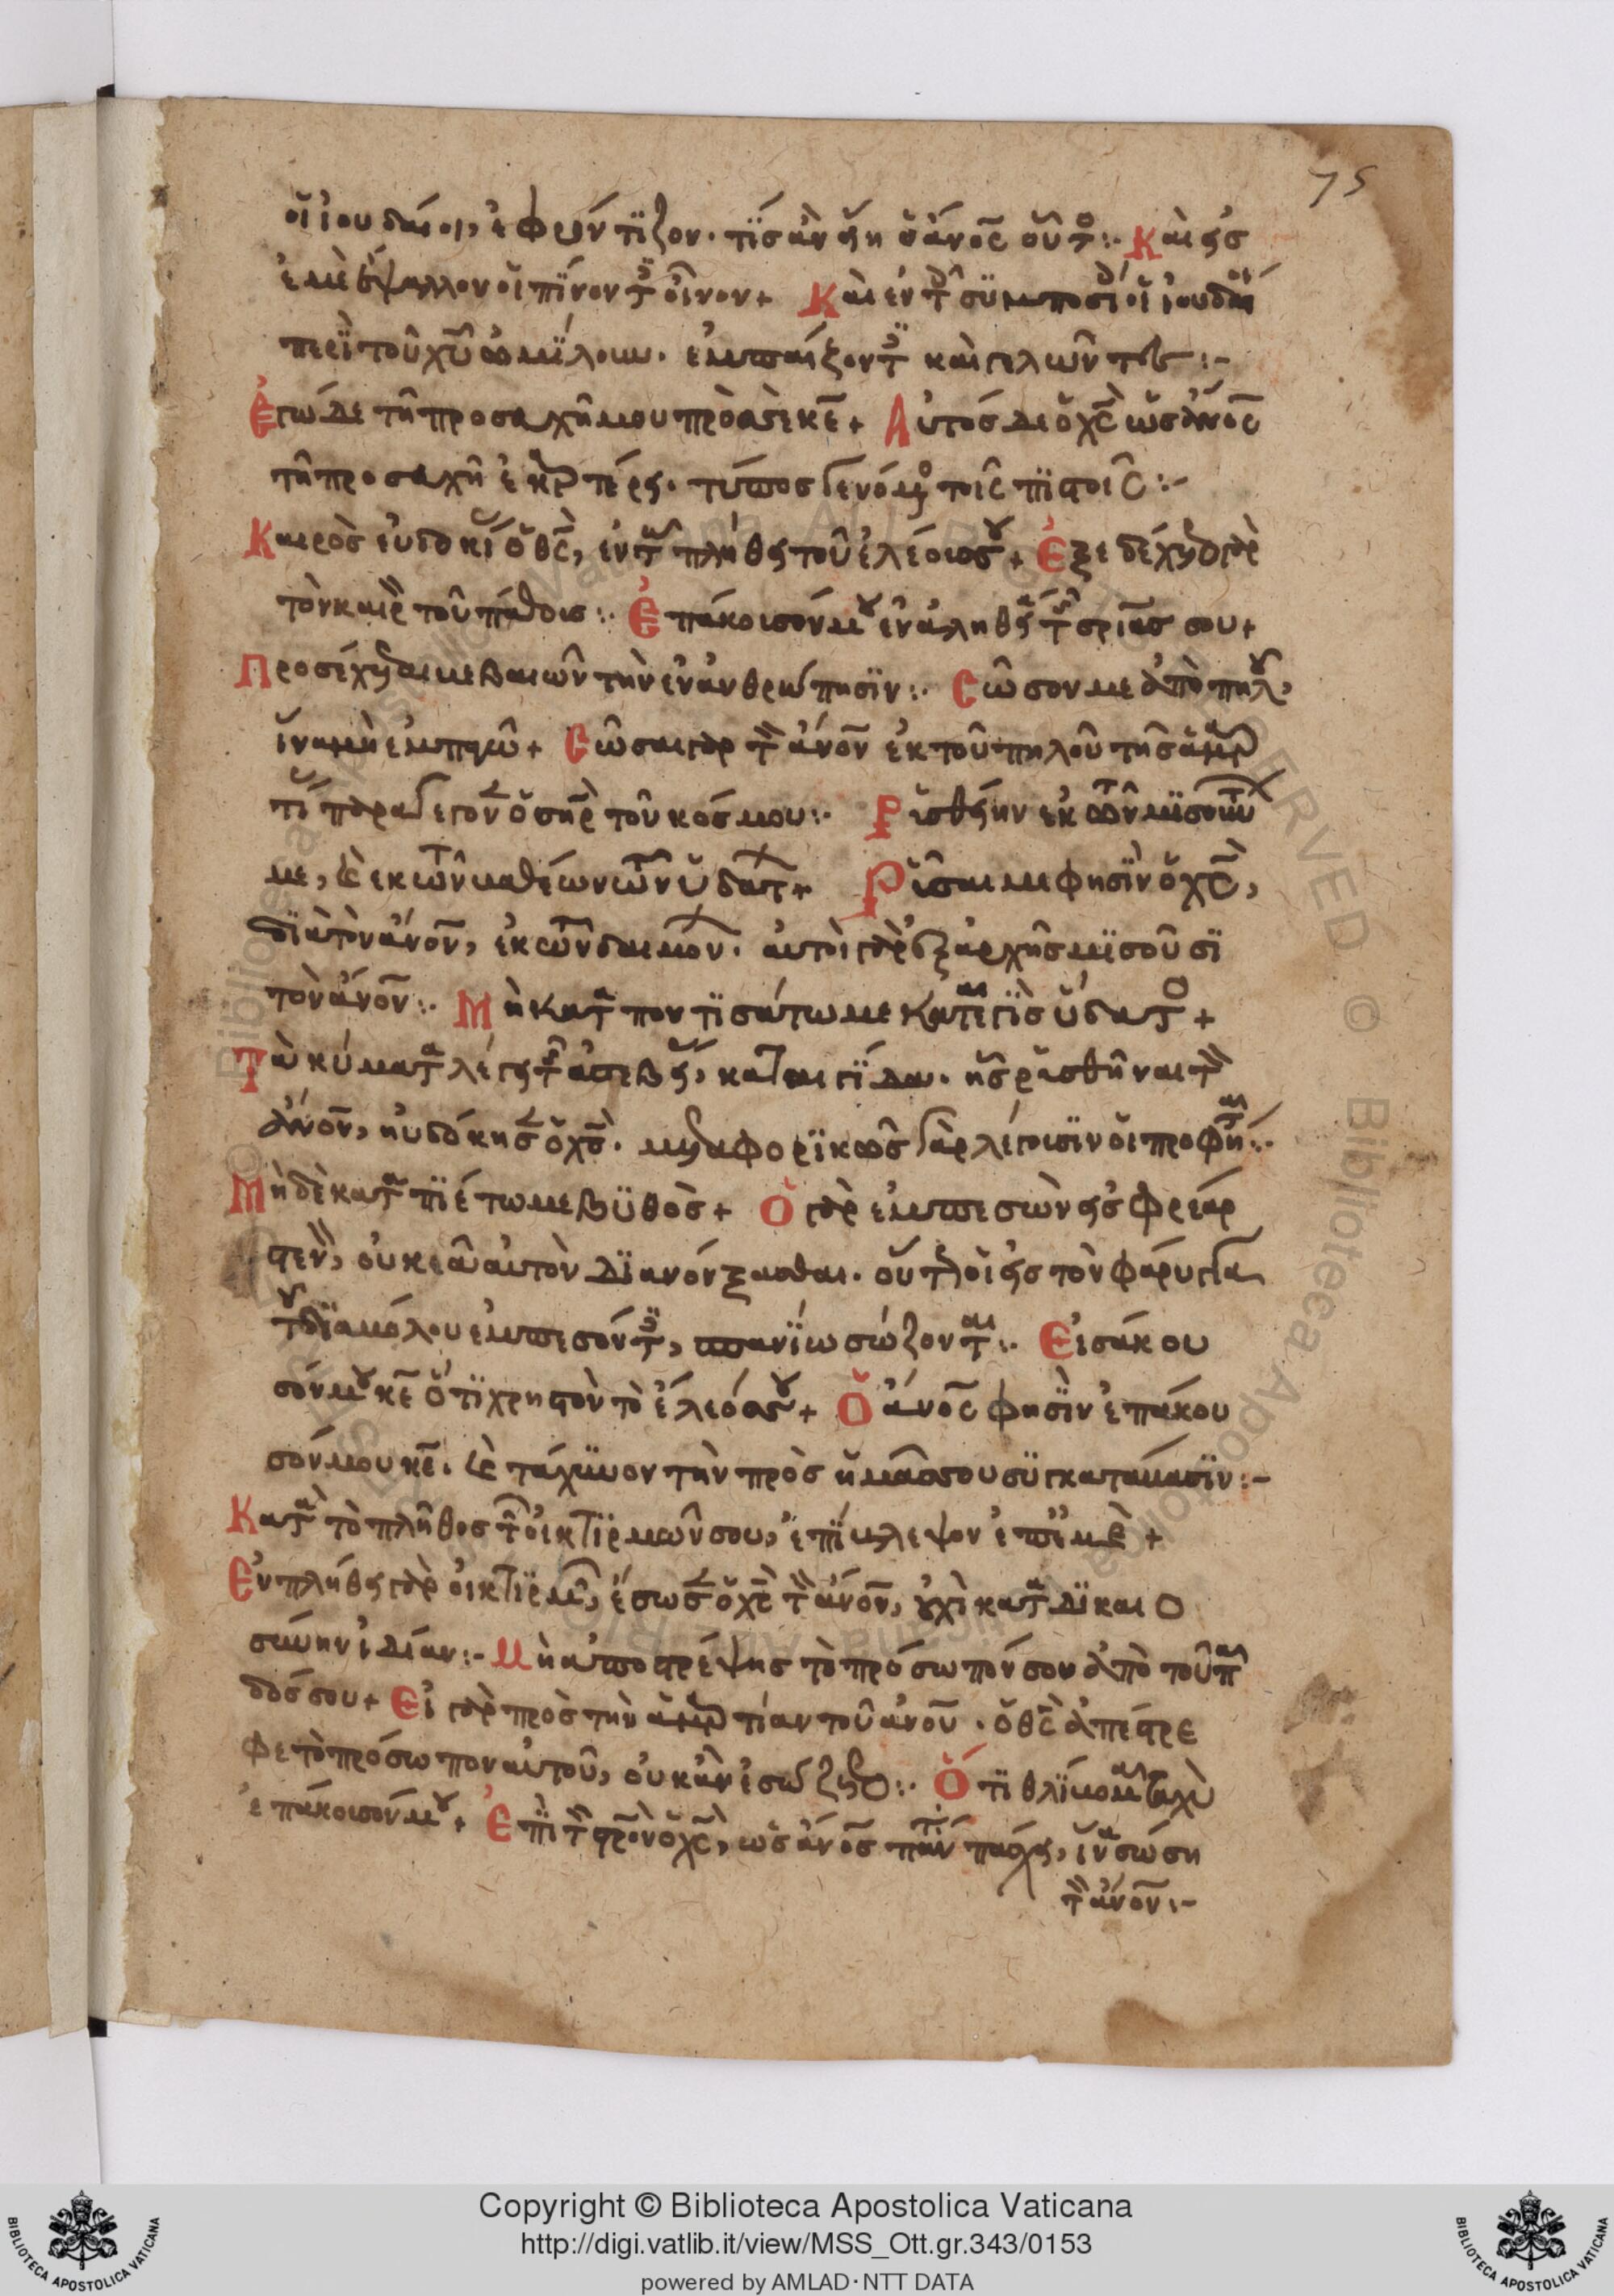 75
οἱ ἰουδαίοι, ἐφρόντιζον· τίς ἂν εἴη ὁ ἄνος οὗτος:· Καὶ εἰς
ἐμὲ ἔψαλλον οἱ πίνοντες οἶνον + Καὶ ἐν τοῖς συμποσίοις οἱ ἰουδαίοι
περὶ τοῦ χυ ὡμίλουν· ἐμπαίζοντες καὶ γελῶντες:-
Ἐγὼ δὲ τῆ προσευχῆ μου πρὸς σὲ κε + Αὐτὸς δὲ ὁ χς ὡς ἄνος
τῆ προσευχῆ ἐκαρτέρει· τύπος γενόμενος τοῖς πιστοῖς:-
Καιρὸς εὐδοκίας ὁ θς, ἐν τῶ πλήθει τοῦ ἐλέους σου + Ἐξεδέχετο γὰρ
τὸν καιρὸν τοῦ πάθους:· Ἐπάκουσόν μου ἐν ἀληθεία τῆς σριας σου +
Προσεύχεται βεβαιῶν τὴν ἐνανθρώπησιν:· Σῶσον με ἀπὸ πηλοῦ,
ἵνα μὴ ἐμπαγῶ + Σῶσαι γὰρ τὸν ἄνον ἐκ τοῦ πηλοῦ τῆς ἁμαρ
τίας παραγέγονεν ὁ σηρ τοῦ κόσμου:· Ρυσθείην ἐκ τῶν μισούντων
με, καὶ ἐκ τῶν βαθέων τῶν ὑδάτων + Ρῦσαι με φησὶν ὁ χς,
διὰ τὸν ἄνον, ἐκ τῶν δαιμόνων· αὐτοὶ γὰρ ἐξ ἀρχῆς μισοῦσι
τὸν ἄνον:· Μή με καταποντισάτω καταιγὶς ὕδατος +
Τὰ κύματα λέγει τῆς ἀσεβείας, καταιγίδα· ἧς ρυσθῆναι τὸν
ἄνον, ηὐδόκησεν ὁ χς· μεταφορικῶς γὰρ λέγουσιν οἱ προφῆται:·
Μηδὲ καταπιέτω με βυθὸς + Ὁ γὰρ ἐμπεσὼν εἰς φρέαρ
στενὸν, οὐκ ἐᾶ αὐτὸν διανοίξασθαι· οὕτως οἱ εἰς τὸν φάρυγγα
τοῦ διαβόλου ἐμπεσόντες, σπανίως σώζονται:· Εἰσάκου
σόν μου κε ὅτι χρηστὸν τὸ ἔλεός σου + Ὁ ἄνος φησὶν ἐπάκου
σόν μου κε· καὶ τάχυνον τὴν πρὸς ἡμᾶς σου συγκατάβασιν:-
Κατὰ τὸ πλῆθος τῶν οἰκτιρμῶν σου, ἐπίβλεψον ἐπ' ἐμὲ +
Ἐν πλήθει γὰρ οἰκτιρμῶν, ἔσωσεν ὁ χς τὸν ἄνον, οὐχὶ κατὰ δικαιο
σύνην ἰδίαν:- Μὴ ἀποστρέψης τὸ πρόσωπόν σου ἀπὸ τοῦ παι
δός σου + Εἰ γὰρ πρὸς τὴν ἁμαρτίαν τοῦ ἄνου· ὁ θς ἀπέστρε
φε τὸ πρόσωπον αὐτοῦ, οὐκ ἂν ἐσώζετο:· Ὅτι θλίβομαι ταχὺ
ἐπάκουσόν μου + Ἐπὶ τὸν στρον ὁ χς, ὡς ἄνος πάντα πάσχει, ἵνα σώση
τὸν ἄνον:-
Copyright © Biblioteca Apostolica Vaticana
http://digi.vatlib.it/view/MSS_Ott.gr.343/0153
powered by AMLAD · NTT DATA
BIBLIOTECA APOSTOLICA VATICANA
BIBLIOTECA APOSTOLICA VATICANA